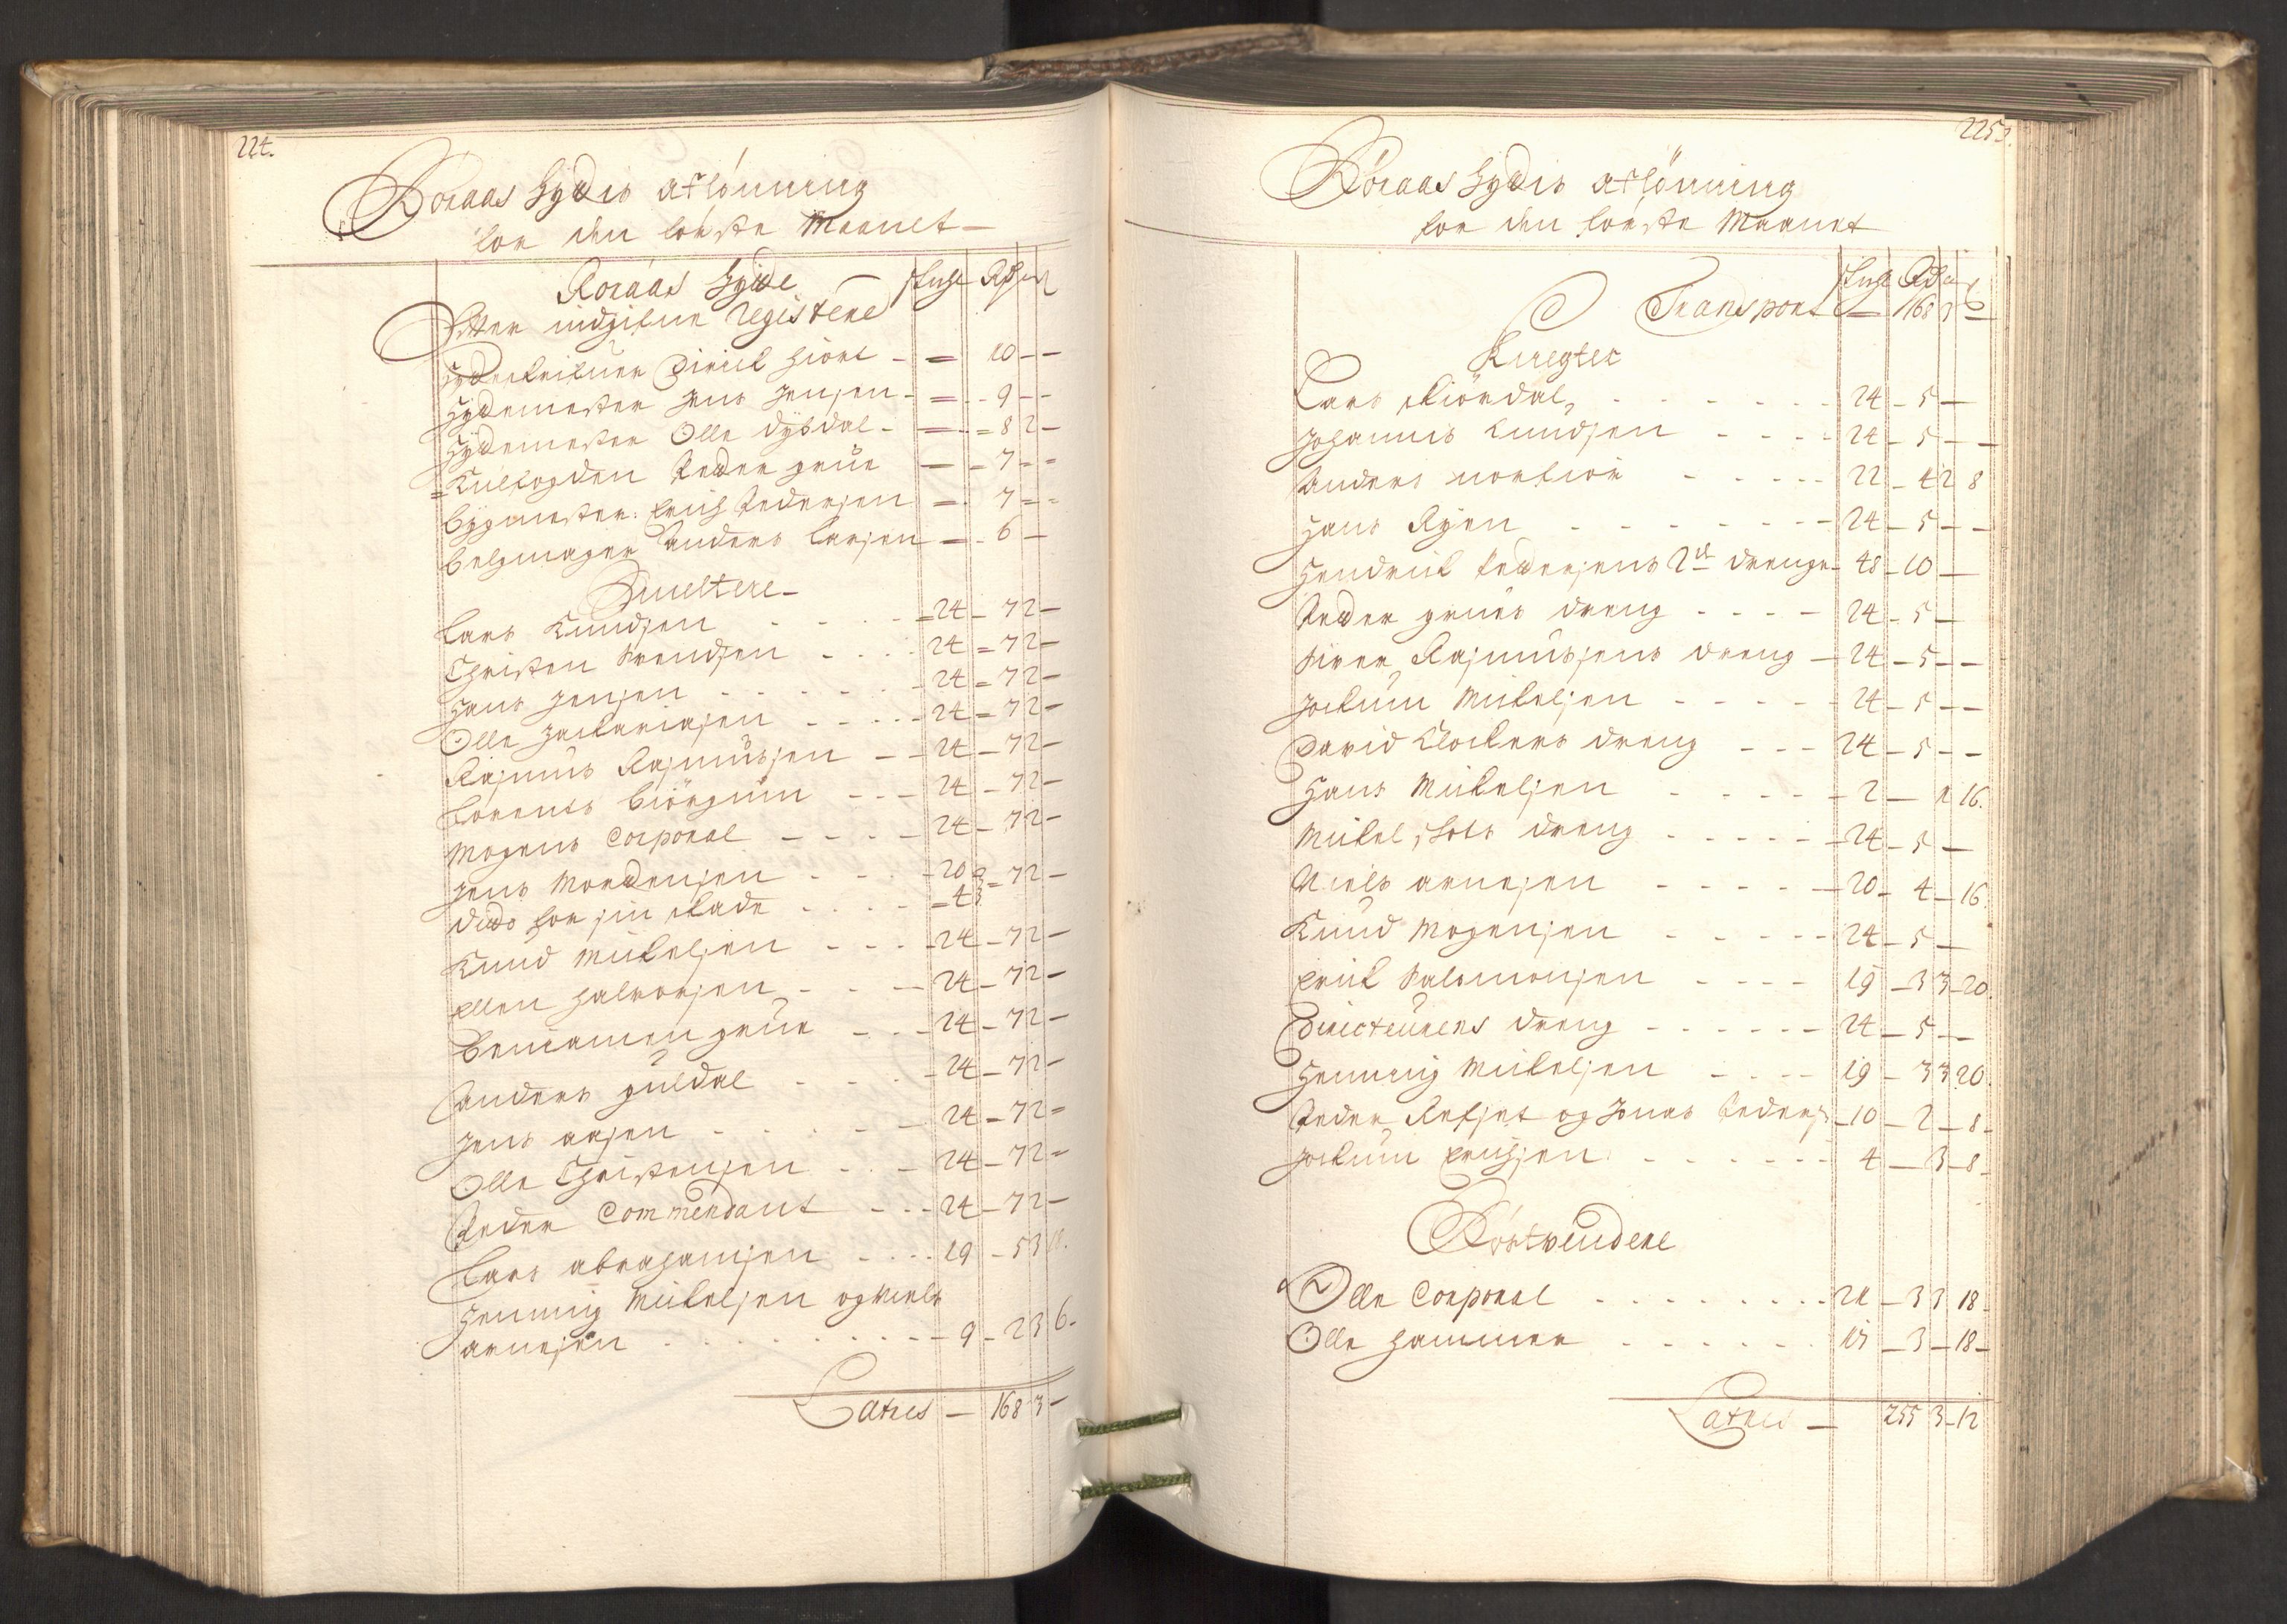 224.
Röraas Hydis Aflönning
for den förste Maanet
Röraas Hytte
skufl Rdr
Efter indgifne Registere
Hydeskrifuer Dirick Hiort - = 10 - -
Hydemester Jens Jensen - = - 9 - -
Hydemester Olle Dysdal - = 8 2 -
Kulfogden Peder grue - 7 - -
bygmester: Erich Pedersen = 7 - -
belgmager Anders Larsen - 6 -
Smeltere
Lars Knudsen - 24 - 7 2 -
Christen Svendsen - 24 - 7 2 -
Hans Jensen - 24 - 7 2 -
Olle Zackariasen - 24 - 7 2 -
Rasmus Rasmussen - 24 - 7 2 -
Lorents Biörgum - 24 - 7 2 -
Mogens Corporal - 24 - 7 2 -
Jens Mordensen - 20
dito for sin skade - 4 - 7 2 -
Knud Mickelsen - 24 - 7 2 -
Ellen Halvorsen - 24 - 7 2 -
Beniamen grue - 24 - 7 2 -
Anders guldal - 24 - 7 2 -
Jens aasen - 24 - 7 2 -
Olle Christensen - 24 - 7 2 -
Peder Commendant - 24 - 7 2 -
Lars Abrahamsen - 19 - 5 3
Henning Mickelsen og Niels
arnesen - 9 - 2 3 6 -
Latus - 168 3 -
225
Röraas Hydis Aflönning
for den förste Maanet
skufl Rdr
Transport - 168 3 -
Knegter
Lars Kiördal - 24 - 5 -
Johannis Knudsen - 24 - 5 - -
Anders nortiör - 22 - 4 2 8
Hans Ryen - 24 - 5 - -
Hendrick Pedersens 2de drenge - 48 - 10 -
Peder grues dreng - 24 - 5 -
Siver Rasmussens dreng - 24 - 5 - -
Jockum Mickelsen - 24 - 5 - -
David Klockers dreng - 24 - 5 - -
Hans Mickelsen - 2 - 1 16.
Mickel skots dreng - 24 - 5 -
Niels arnesen - 20 - 4 - 16.
Knud Mogensen - 24 - 5 -
Erick Salomonsen - 19 - 3 3 20.
Diricteurens dreng - 24 - 5 -
Henning Mickelsen - 19 - 3 3 20.
Peder Refset og Jonas Peders - 10 - 2 - 8 -
Jockum Erichsen - 4 - 3 - 8 -
Röstvendere
Olle Corporal - 21 - 3 3 18 -
Olle Hammer - - 3 - 18 -
Latus - 255 3 - 12